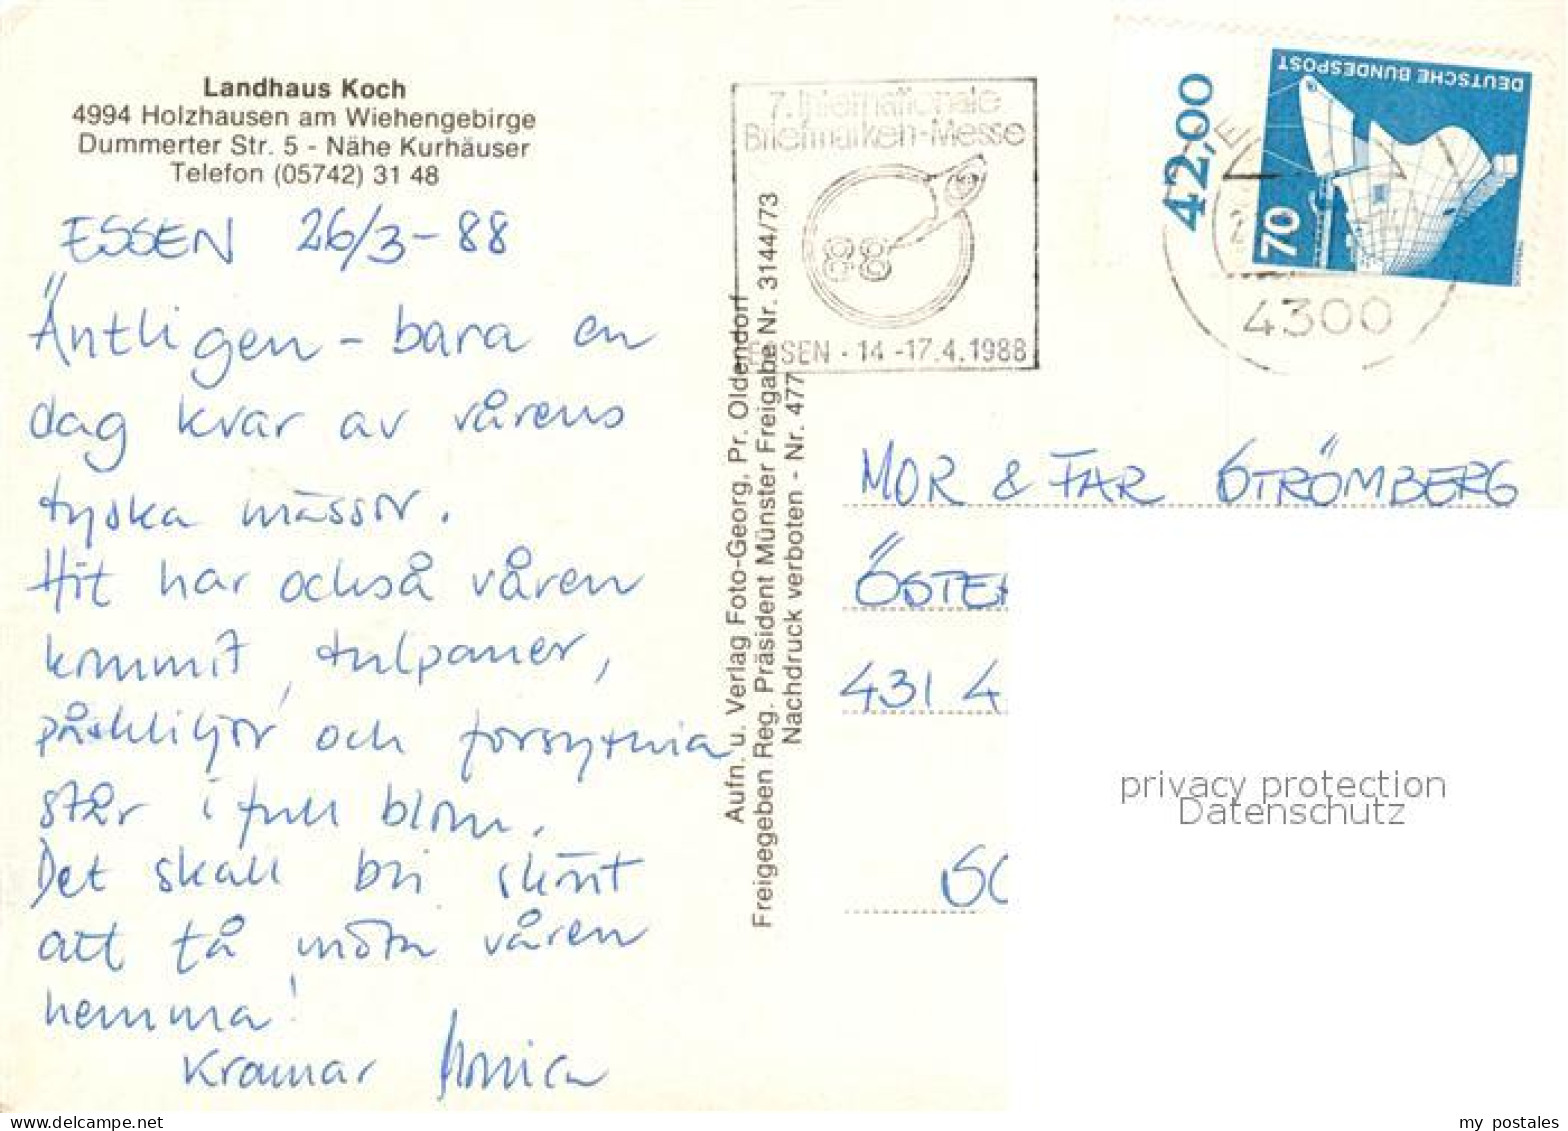 Landhaus Koch
4994 Holzhausen am Wiehengebirge
Dummerter Str. 5 - Nähe Kurhäuser
Telefon (05742) 31 48
ESSEN 26/3-88
Äntligen - bara en
dag kvar av vårens
tyska mässor.
Hit har också våren
kommit, tulpaner,
påskliljor och forsythia
står i full blom.
Det skall bli skönt
att få möta våren
hemma!
Kramar Monica
Aufn. u. Verlag Foto-Georg, Pr. Oldendorf
Freigegeben Reg. Präsident Münster Freigabe Nr. 3144/73
Nachdruck verboten - Nr. 477
7. Internationale
Briefmarken-Messe
88
ESSEN · 14 -17.4.1988
42,00
DEUTSCHE BUNDESPOST
70
4300
MOR & FAR STRÖMBERG
ÖSTER
431 4
privacy protection
Datenschutz
my postales